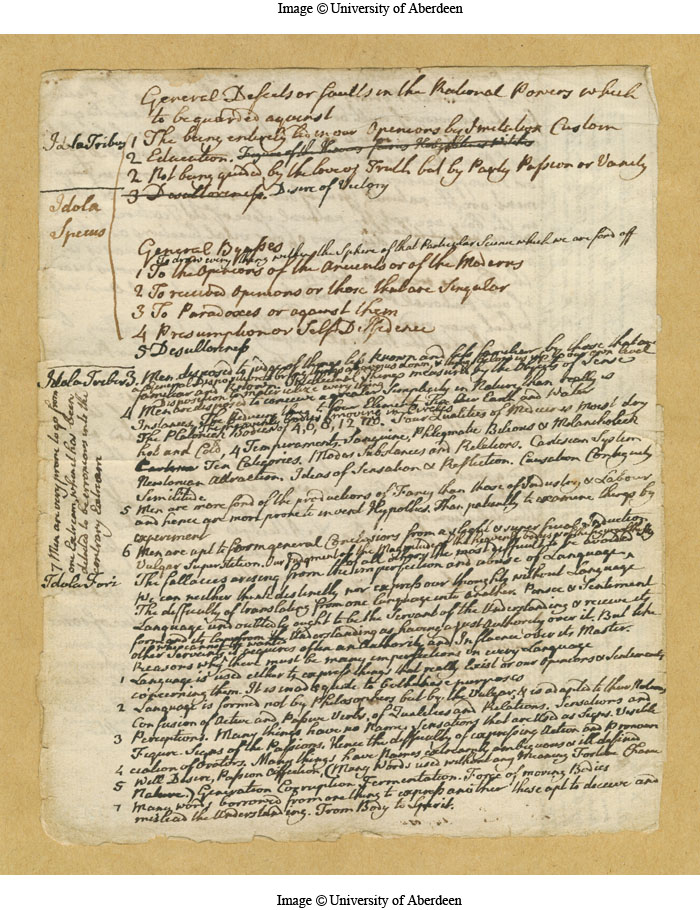 Image © University of Aberdeen
General Defects or faults in the Rational Powers which
to be guarded against
Idola Tribus 1 The being entirely led in our Opinions by Imitation Custom
2 Education.
2 Not being guided by the love of Truth but by Party Passion or Vanity
3 Desultoriness. Desire of Victory
Idola
Specus
General Byasses
To draw every thing within the Sphere of that Particular Science which we are fond off
1 To the Opinions of the Ancients or of the Moderns
2 To received Opinions or those that are Singular
3 To Paradoxes or against them
4 Presumption or Self Diffidence
5 Desultoriness
Idola Tribus 3. Men disposed to judge of things less known and less familiar by those that are
familiar and known. Intellectual things measured by the Objects of Sense
4 Men are disposed to conceive a greater Simplicity in Nature than really is
Instances, The deducing things to four Elements Fire Air Earth and Water
The Platonick Bodies of 4, 6, 8, 12, 20. Four Qualities of Medicines Moist dry
hot and Cold, 4 Temperaments, Sanguine, Phlegmatic Bilious & Melancholick
Ten Categories. Modes Substances and Relations. Cartesian System
Newtonian Attraction. Ideas of Sensation & Reflection. Causation Contiguity
Similitude
5 Men are more fond of the productions of Fancy than those of Industry & Labour
and hence are more prone to invent Hypothes. Than patiently to examine things by
experiment
6 Men are apt to form general Conclusions from a slight & superficial Induction
Vulgar Superstition. Our Judgment of the Magnitude of the heavenly bodies
7 Men are very prone to go from
one Extream, which has been
detected to be erroneous into the
contrary Extream
Idola Fori
The fallacies arising from the imperfection and abuse of Language
We can neither think distinctly nor express our thoughts without Language
The difficulty of translating from one language into another. Pensee & Sentiment
Language undoubtedly ought to be the Servant of the Understanding & receive its
form and its import from the Understanding as having a just Authority over it, But like
other Servants it acquires often an Authority and Influence over its Master.
Reasons why there must be many imperfections in every Language
1 Language is used either to express things that really Exist or our Opinions & Sentiments
concerning them. It is inadequate to both these purposes
2 Language is formed not by Philosophers but by the Vulgar, & is adapted to their Notions,
Confusion of Active and Passive Verbs, of Qualities and Relations. Sensations and
3 Perceptions. Many things have no Names, Sensations that are Used as Signs. Visible
Figure Signs of the Passions. Hence the difficulty of expressing Action and Pronun
4 ciation of Orators. Many things have Names extremly ambiguous or ill defined
5 Will Desire, Passion Affection, (Many Words used without any Meaning Fortune Chance
Nature) Generation Corruption Fermentation. Force of moving Bodies
7 Many words borrowed from one thing to express another these apt to deceive and
mislead the Understanding. From Body to Spirit.
Image © University of Aberdeen